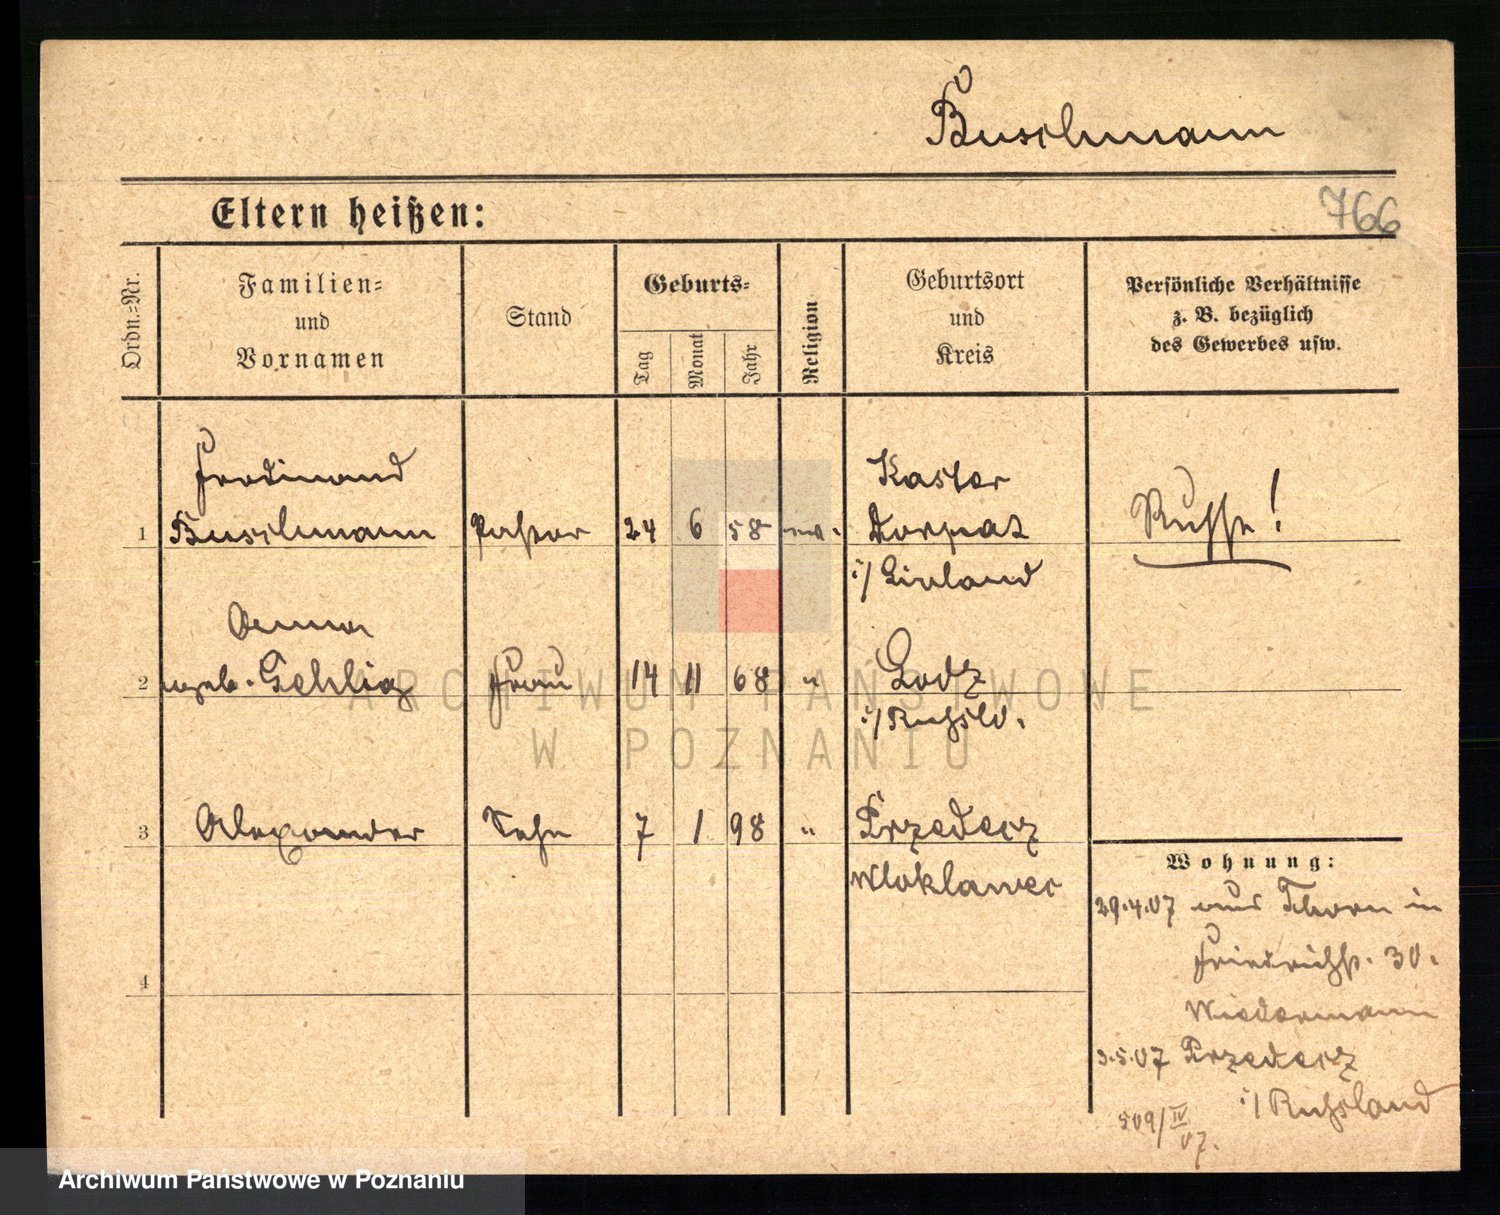 Buschmann
Eltern heißen:
766
Ordn.-Nr.
Familien-
und
Vornamen
Stand
Geburts-
Tag
Monat
Jahr
Religion
Geburtsort
und
Kreis
Persönliche Verhältnisse
z. B. bezüglich
des Gewerbes usw.
1
Ferdinand
Buschmann
Pastor
24
6
58
ev.
Kaster
Dorpat
i/ Livland
Russe!
2
Anna
geb. Gehlig
Frau
14
11
68
"
Lodz
i/ Russld.
3
Alexander
Sohn
7
1
98
"
Przedecz
Wloklawec
4
Wohnung:
29.4.07 aus Thorn in
Friedrichst. 30.
Wiedermann
3.5.07 Przedecz
i/ Russland
509/IV 07.
ARCHIWUM PAŃSTWOWE
W POZNANIU
Archiwum Państwowe w Poznaniu